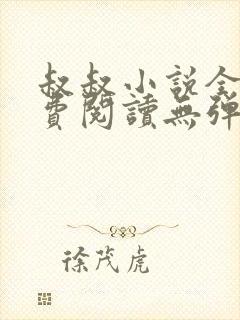 叔叔小説全
費閱讀無彈
徐茂虎